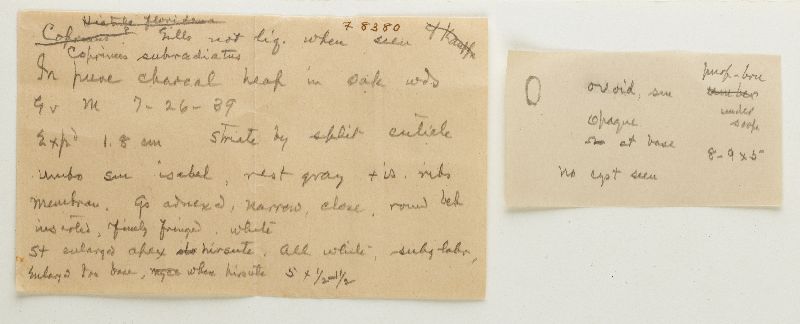 7 8380
Coprinus Gills not liq. when seen
Coprinus subradiatus
In pure charcoal heap in oak wds
Gv M 7-26-39
Exp'd 1.8 cm Striate by split cuticle
umbo sm isabel, rest gray + is ribs
membran. Gs adnexed, narrow, close, round beh
inserted, finely fringed. white
St enlarged apex hirsute. All white, subglabr,
enlarged tow base, where hirsute 5 x ½-1½
ovoid, sm
opaque
sm at base
purp-brn
umber
under
scope
8-9 x 5
No cyst seen